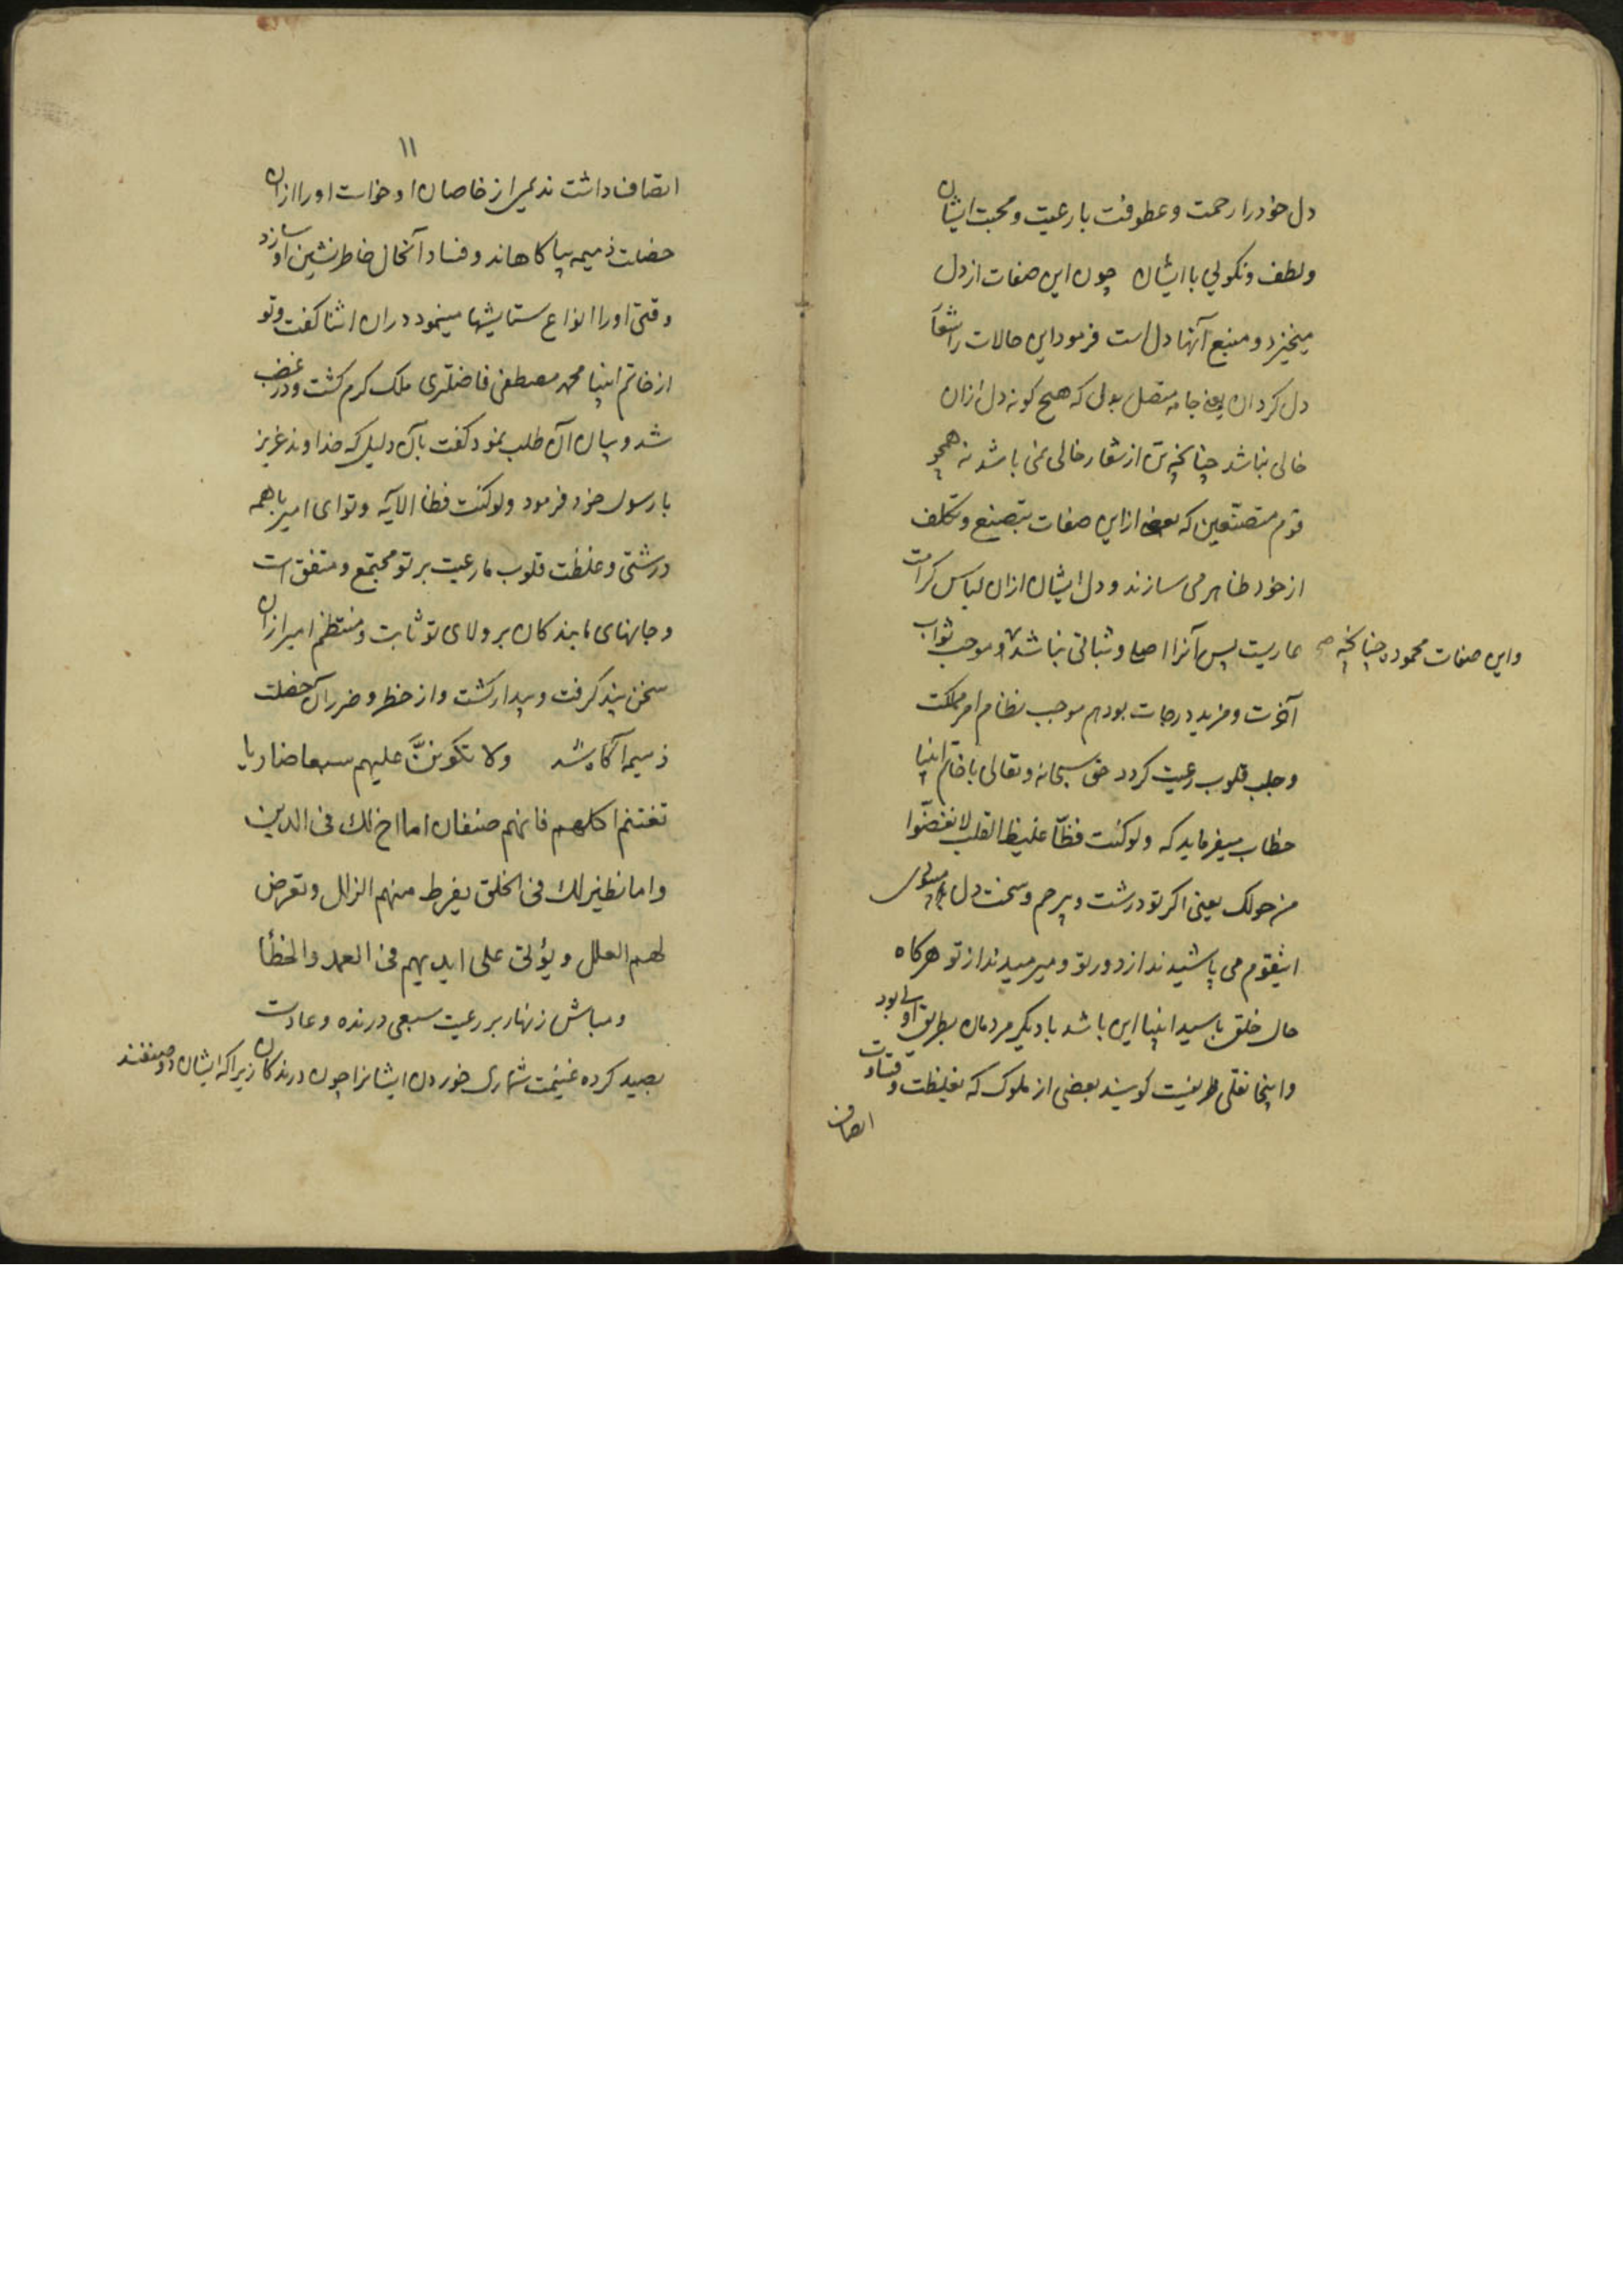 دل خود را رحمت و عطوفت با رعیت و محبت ایشان
و لطف و نکویی با ایشان چون این صفات از دل
میخیزد و منبع آنها دل است فرمود این حالات را شعار
دل کردان یعنی جامه متصل بدل که هیچ کونه دل ازان
خالی نباشد چنانچه تن از شعار خالی نمی باشد نه همچو
قوم متصنعین که بعضی از این صفات بتصنع و تکلف
از خود ظاهر می سازند و دل ایشان ازان لباس کرامت
عاریست پس آنرا اصلی و ثباتی نباشد و موجب ثواب
واین صفات محموده چنانچه صح
آخرت و مزید درجات بود هم موجب نظام امر مملکت
و جلب قلوب رعیت کردد حق سبحانه و تعالی با خاتم انبیا
خطاب میفرماید که ولو کنت فظّا غلیظ القلب لانفضّوا
من حولک یعنی اکر تو درشت و بیرحم و سخت دل میبودی
اینقوم می پاشیدند از دور تو و میرمیدند از تو هرکاه
حال خلق با سید انبیا این باشد با دیکر مردمان بطریق اولی بود
و اینجا نقلی ظریفیست کویند بعضی از ملوک که بغلظت و قساوت
اتصاف
۱۱
اتصاف داشت ندیمی از خاصان او خواست او را ازان
خصلت ذمیمه بیاکاهاند و فساد آنحال خاطر نشین او سازد
وقتی او را انواع ستایشها مینمود دران اثنا کفت و تو
از خاتم انبیا محمد مصطفی فاضلتری ملک کرم کشت و در غضب
شد و بیان آن طلب نمود کفت بآن دلیل که خداوند عزیز
با رسول خود فرمود ولو کنت فظا الآیه و تو ای امیر با همه
درشتی و غلظت قلوب ما رعیت بر تو مجتمع و متفق است
و جانهای ما بندکان بر ولای تو ثابت و منتظم امیر ازان
سخن پند کرفت و بیدار کشت و از خطر و ضرر آن خصلت
ذمیمه آکاه شد ولا تکوننَّ علیهم سبعا ضاریا
تغتنم اکلهم فانهم صنفان اما اخ لك فی الدین
واما نظیر لك فی الخلق یفرط منهم الزلل وتعرض
لهم العلل ویؤتی علی ایدیهم فی العمد والخطأ
و مباش زنهار بر رعیت سبعی درنده و عادت
بصید کرده غنیمت شماری خوردن ایشانرا چون درندکان زیرا که ایشان دو صنفند